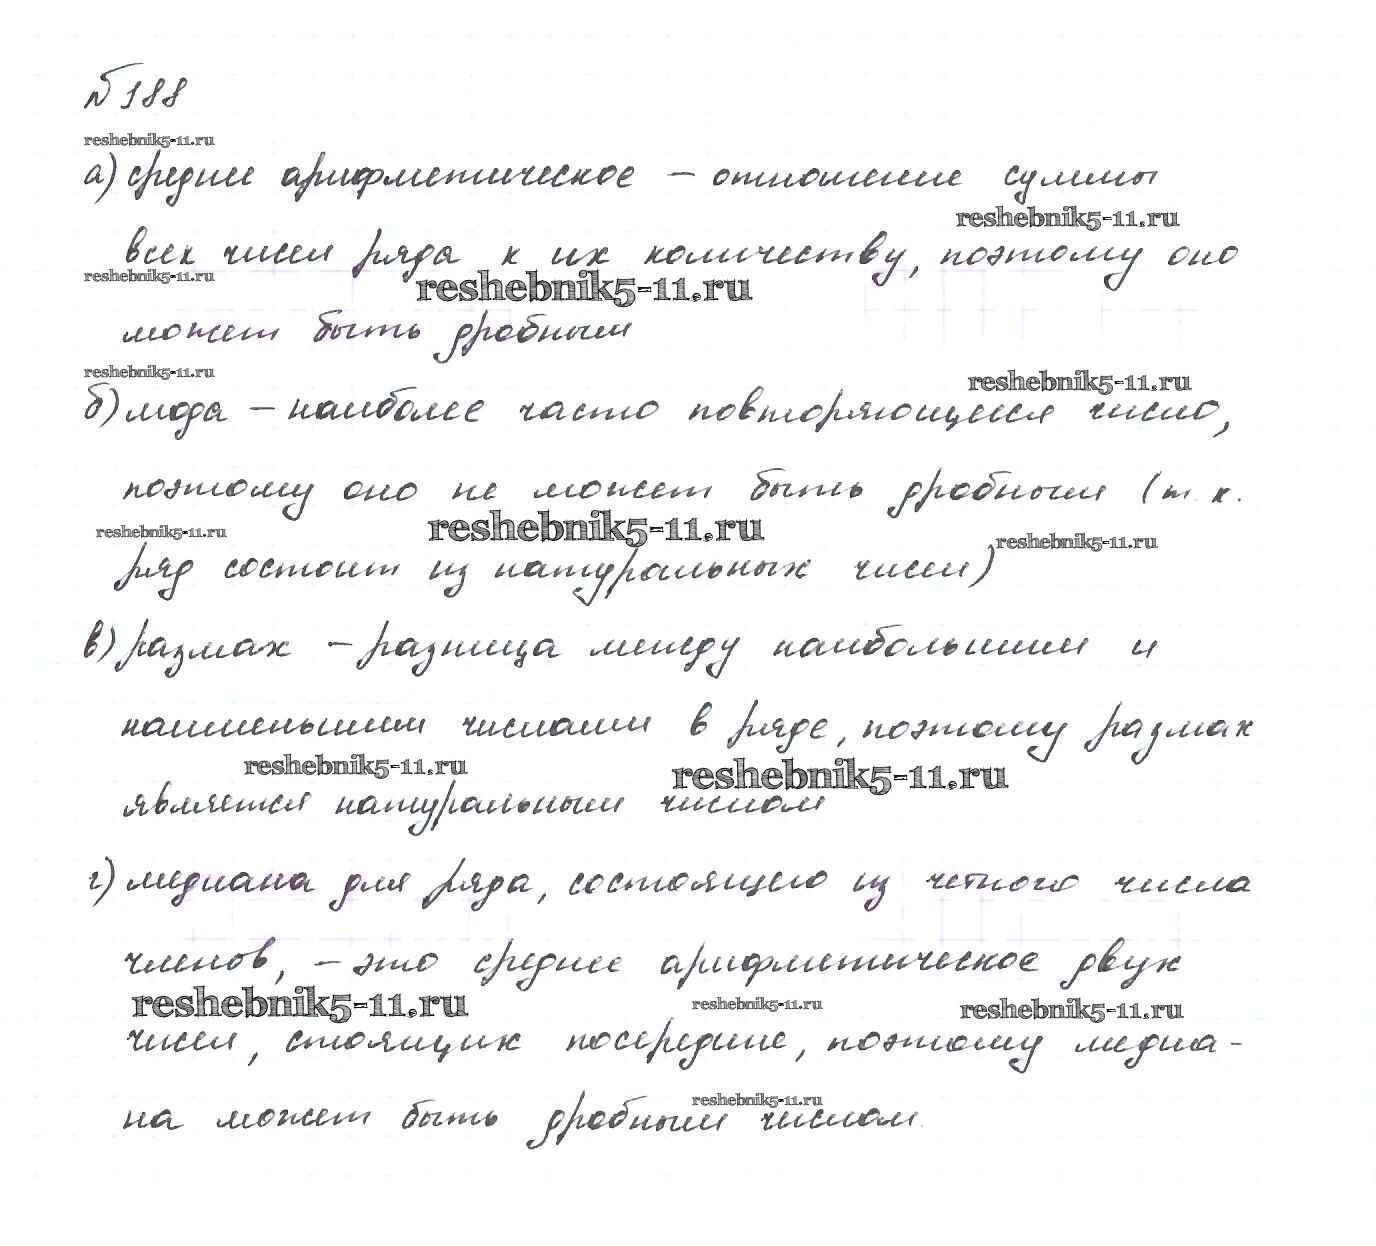 №188
reshebnik5-11.ru
а) среднее арифметическое – отношение суммы
reshebnik5-11.ru
всех чисел ряда к их количеству, поэтому оно
reshebnik5-11.ru
reshebnik5-11.ru
может быть дробным
reshebnik5-11.ru
reshebnik5-11.ru
б) мода – наиболее часто повторяющееся число,
поэтому оно не может быть дробным (т.к.
reshebnik5-11.ru
reshebnik5-11.ru
reshebnik5-11.ru
ряд состоит из натуральных чисел)
в) размах – разница между наибольшим и
наименьшим числами в ряде, поэтому размах
reshebnik5-11.ru
reshebnik5-11.ru
является натуральным числом
г) медиана для ряда, состоящего из четного числа
членов, – это среднее арифметическое двух
reshebnik5-11.ru
reshebnik5-11.ru
reshebnik5-11.ru
чисел, стоящих посередине, поэтому медиа-
reshebnik5-11.ru
на может быть дробным числом